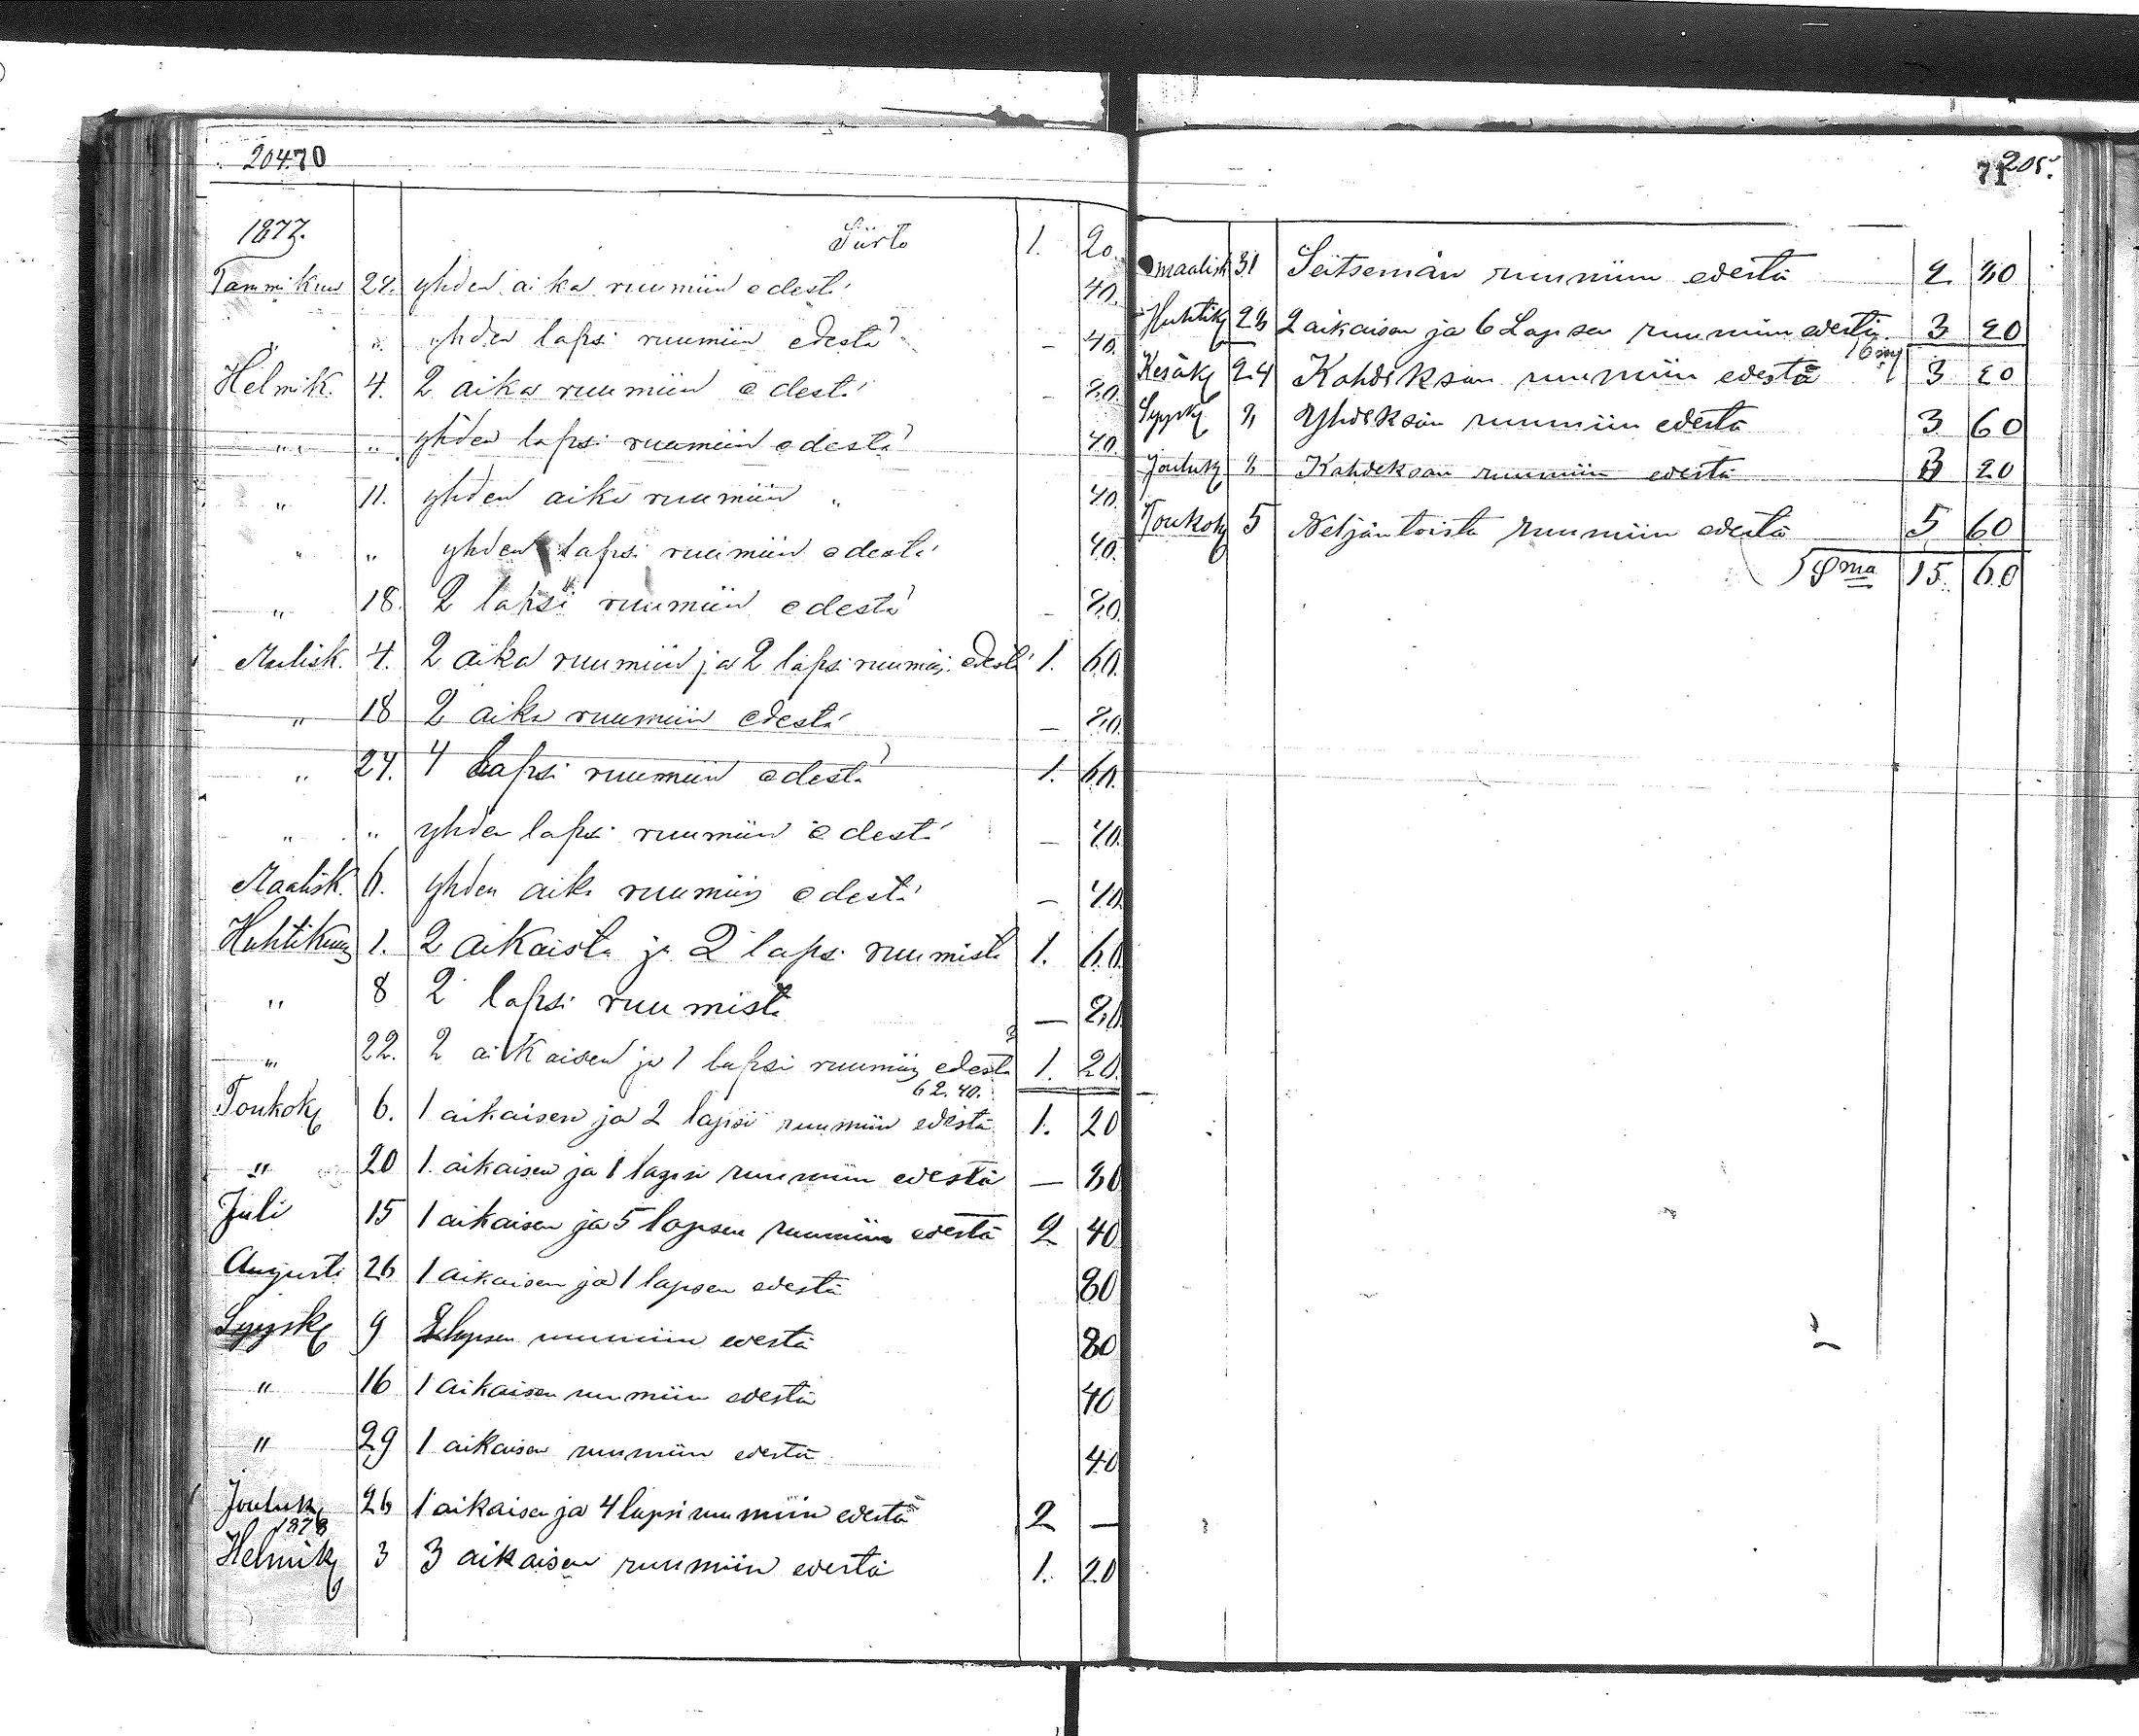 204. 70
1877. Siirto 1. 20.
Tammikuu 28. yhden aika ruumiin edestä 40.
" " yhden lapsi ruumiin edestä – 40.
Helmik. 4. 2 aika ruumiin edestä – 80.
" " yhden lapsi ruumiin edestä 40.
" 11. yhden aika ruumiin " 40.
" " yhden lapsi ruumiin edestä 40.
" 18. 2 lapsi ruumiin edestä – 80.
Maalisk. 4. 2 aika ruumiin ja 2 lapsi ruumiin edestä 1. 60.
" 18 2 aika ruumiin edestä – 80.
" 24. 4 lapsi ruumiin edestä 1. 60.
" " yhden lapsi ruumiin edestä – 40.
Maalisk. yhden aika ruumiin edestä – 40.
Huhtikuu 1. 2 aikaista ja 2 lapsi ruumista 1. 60.
" 8 2 lapsi ruumista – 80.
" 22. 2 aikaisen ja 1 lapsi ruumiin edestä 1. 20.
62. 40.
Toukok 6. 1 aikaisen ja 2 lapsi ruumiin edestä 1. 20
" 20 1 aikaisen ja 1 lapsi ruumiin edestä – 80
Juli 15 1 aikaisen ja 5 lapsen ruumiin edestä 2 40
Augusti 26 1 aikaisen ja 1 lapsen edestä 80
Syysk 9 2 lapsen ruumiin edestä 80
" 16 1 aikaisen ruumiin edestä 40
" 29 1 aikaisen ruumiin edestä 40
Jouluk 26 1 aikaisen ja 4 lapsi ruumiin edestä 2 –
1878
Helmik 3 3 aikaisen ruumiin edestä 1. 20
71 205.
maalisk 31 Seitsemän ruumiin edestä 2 80
Huhtik 28 2 aikaisen ja 6 Lapsen ruumiin edestä 3 20
Kesäk 24 Kahdeksan ruumiin edestä 3 20
Syysk Yhdeksän ruumiin edestä 3 60
Jouluk Kahdeksan ruumiin edestä 3 20
Toukok 5 Neljäntoista ruumiin edestä 5 60
Sma 15. 60